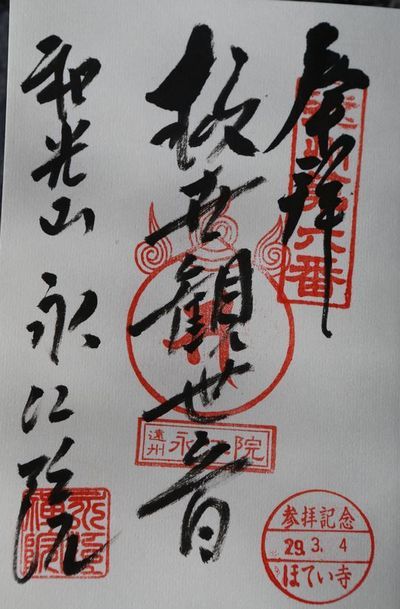 奉拝
六番
救世観世音
遠州
永江院
和光山 永江院
参拝記念
29.3.4
ほてい寺